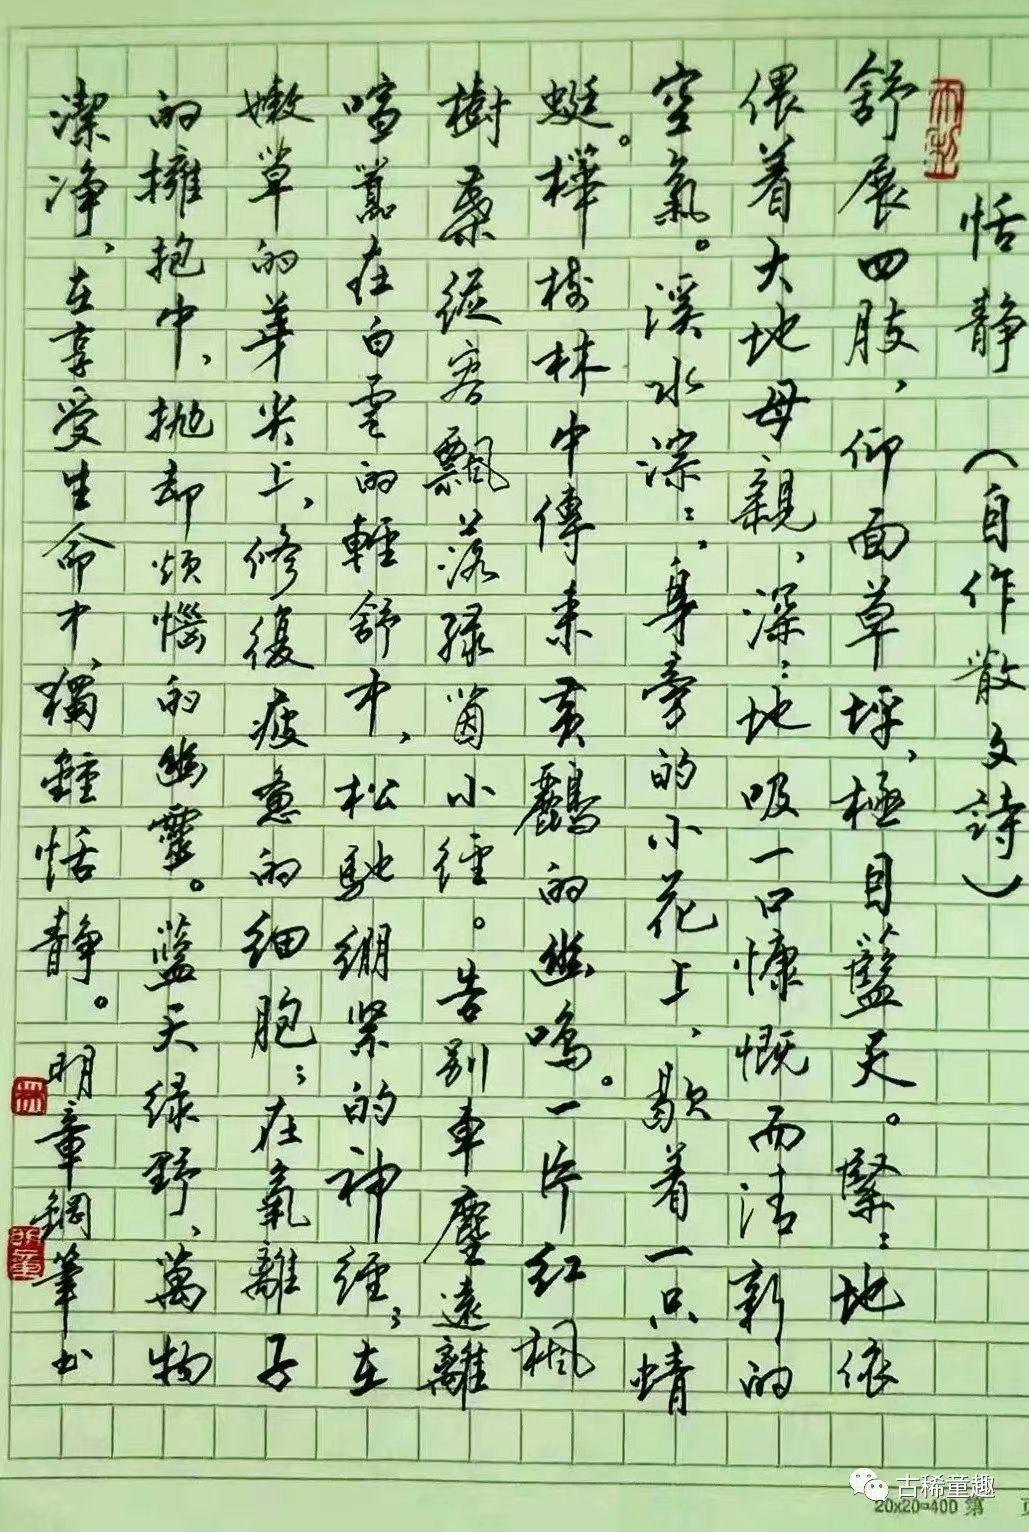 恬静（自作散文詩）
舒展四肢，仰面草坪，極目藍天。緊：地依
偎着大地母親，深：地吸一口慷慨而清新的
空氣。溪水淙：，身旁的小花上、歇着一只蜻
蜓。樺树林中傳来黄鸝的幽鳴。一片红楓
樹葉從容飄落绿茵小徑。告别車塵遠離
喧囂在白雲的輕舒中，松馳绷紧的神经；在
嫩草的芽尖上，修復疲惫的细胞；在氧離子
的擁抱中，抛却烦惱的幽靈。藍天绿野、萬物
潔净，在享受生命中，獨鍾恬静。明章鋼筆书
古稀童趣
20x20=400 第